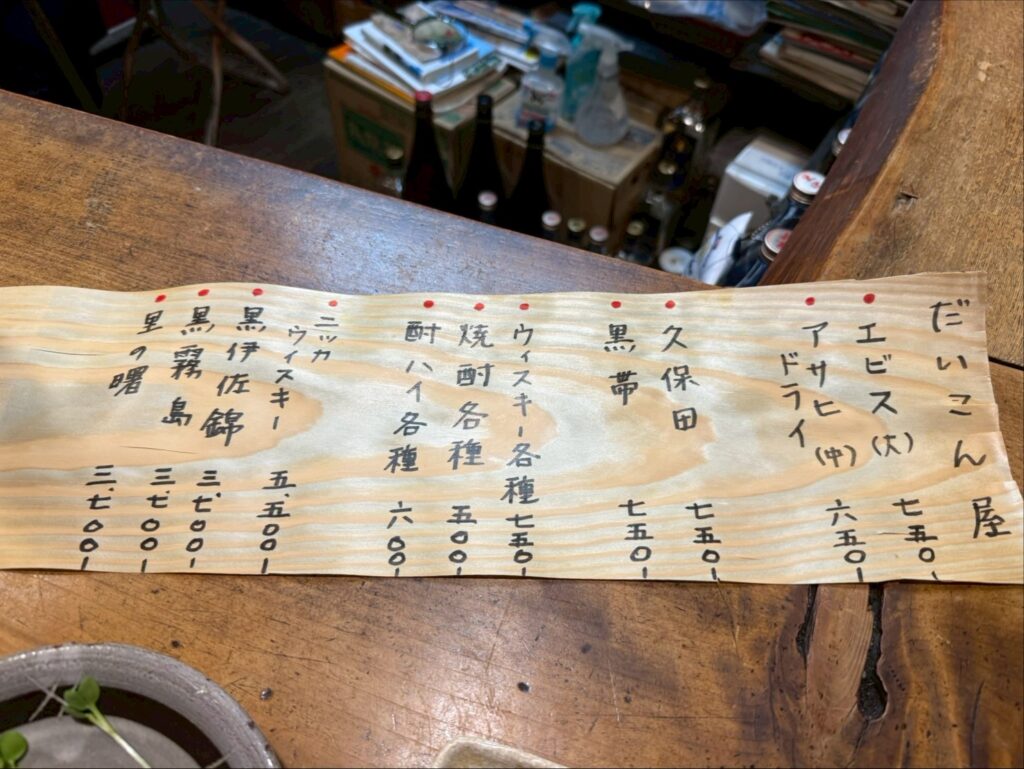 だいこん屋
エビス(大) 七五〇-
アサヒドライ(中) 六五〇-
久保田 七五〇-
黒帯 七五〇-
ウィスキー各種 七五〇-
焼酎各種 五〇〇-
酎ハイ各種 六〇〇-
ニッカ
ウィスキー 五、五〇〇-
黒伊佐錦 三、七〇〇-
黒霧島 三、七〇〇-
里の曙 三、七〇〇-